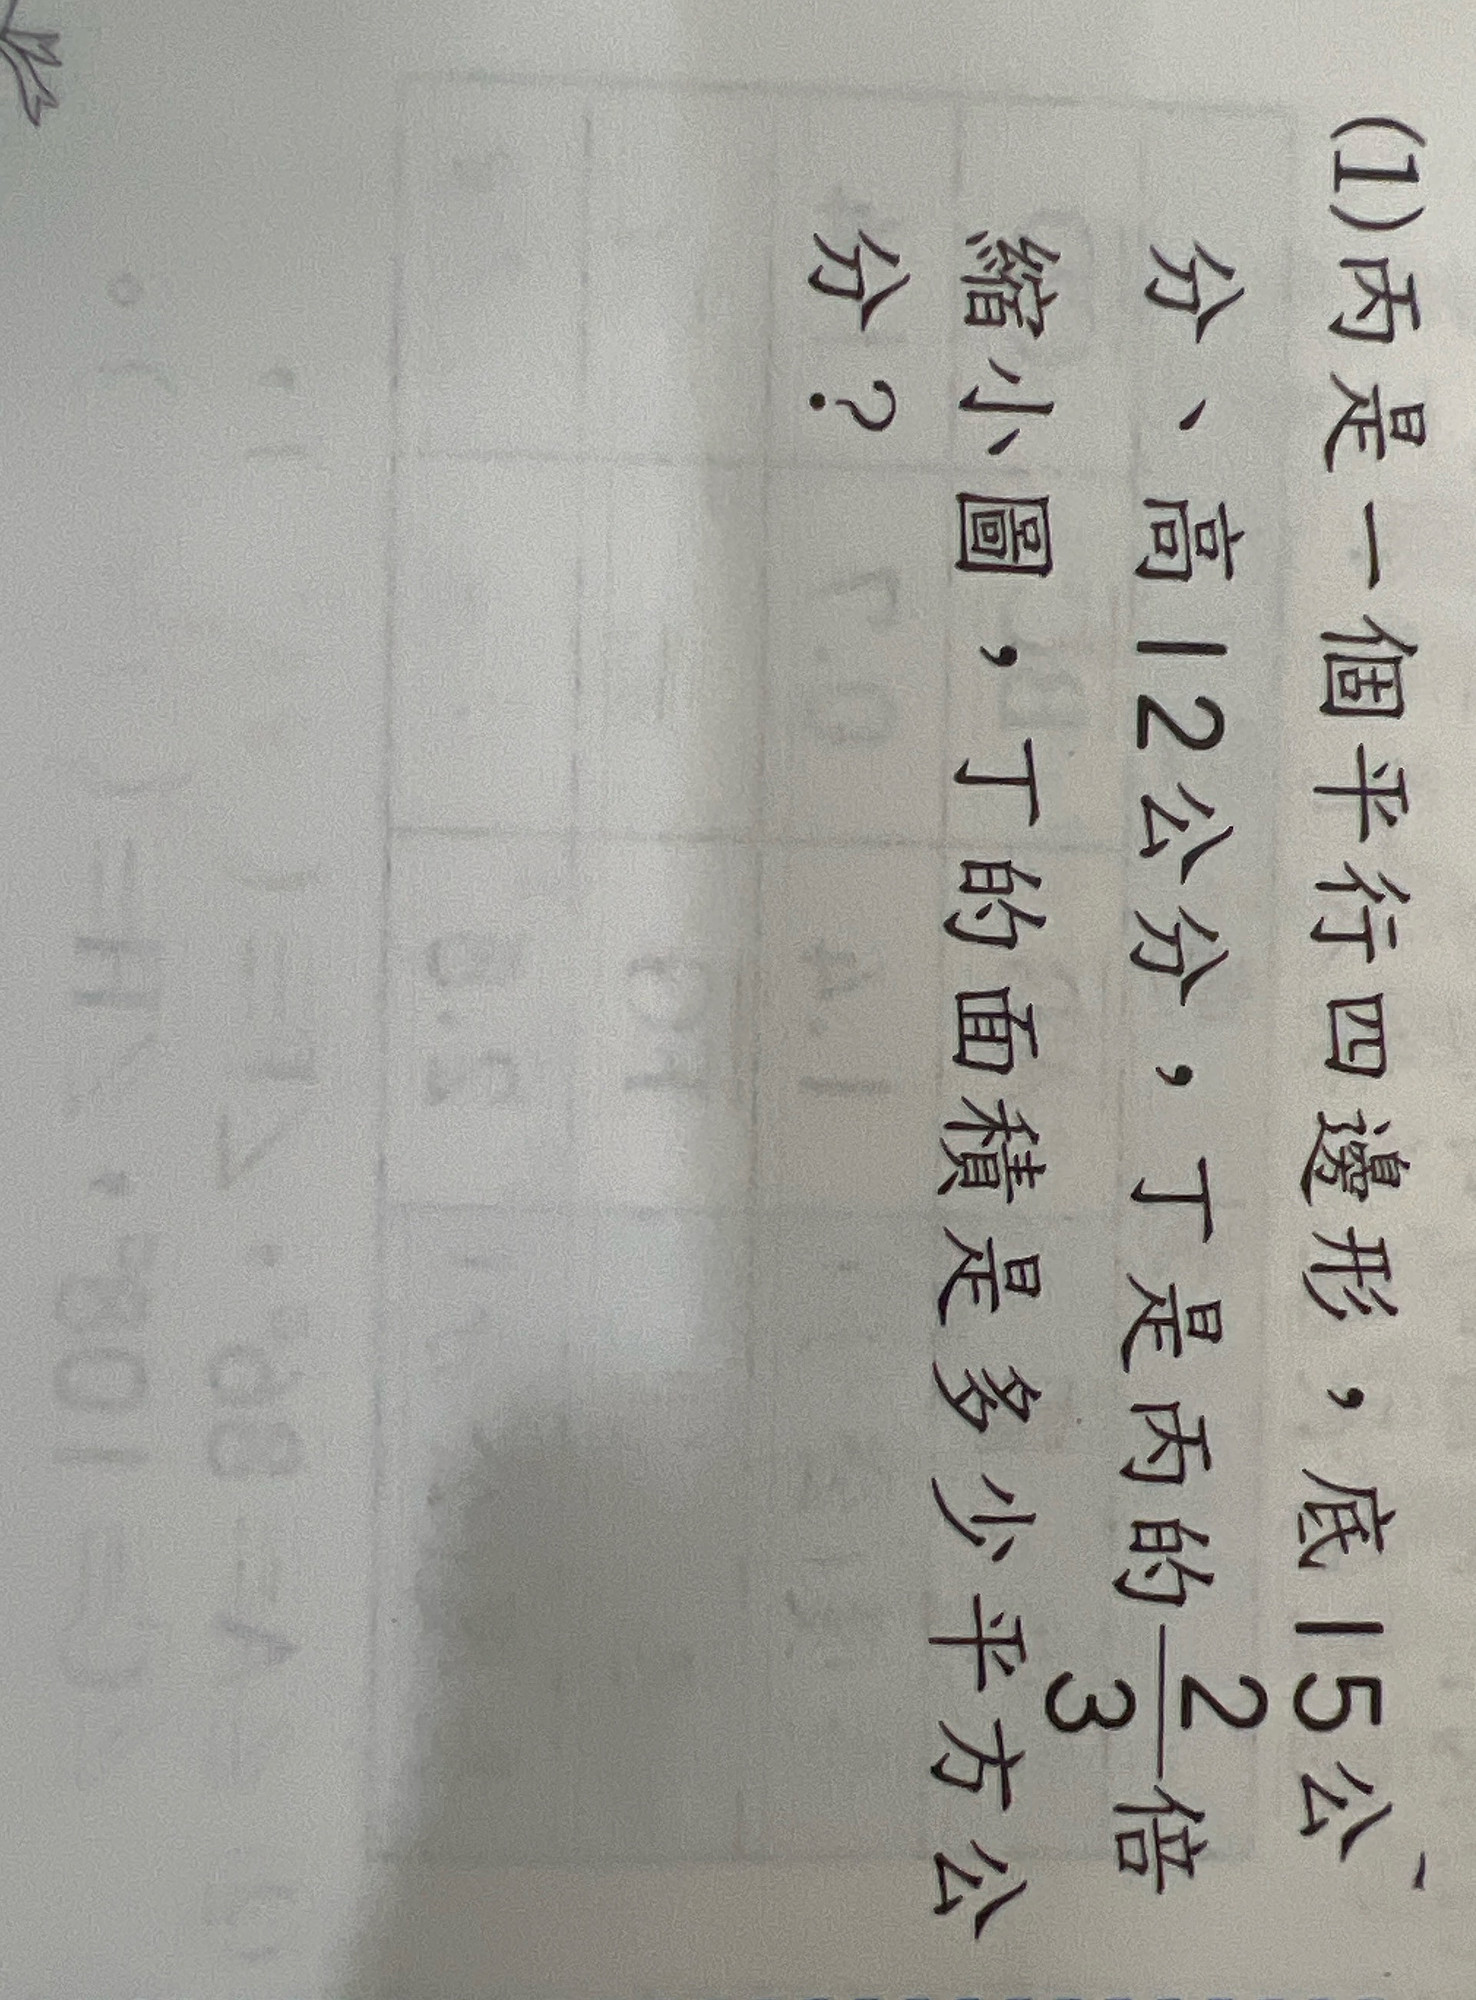 (1)丙是一個平行四邊形，底15公
分、高12公分，丁是丙的2/3倍
縮小圖，丁的面積是多少平方公
分？